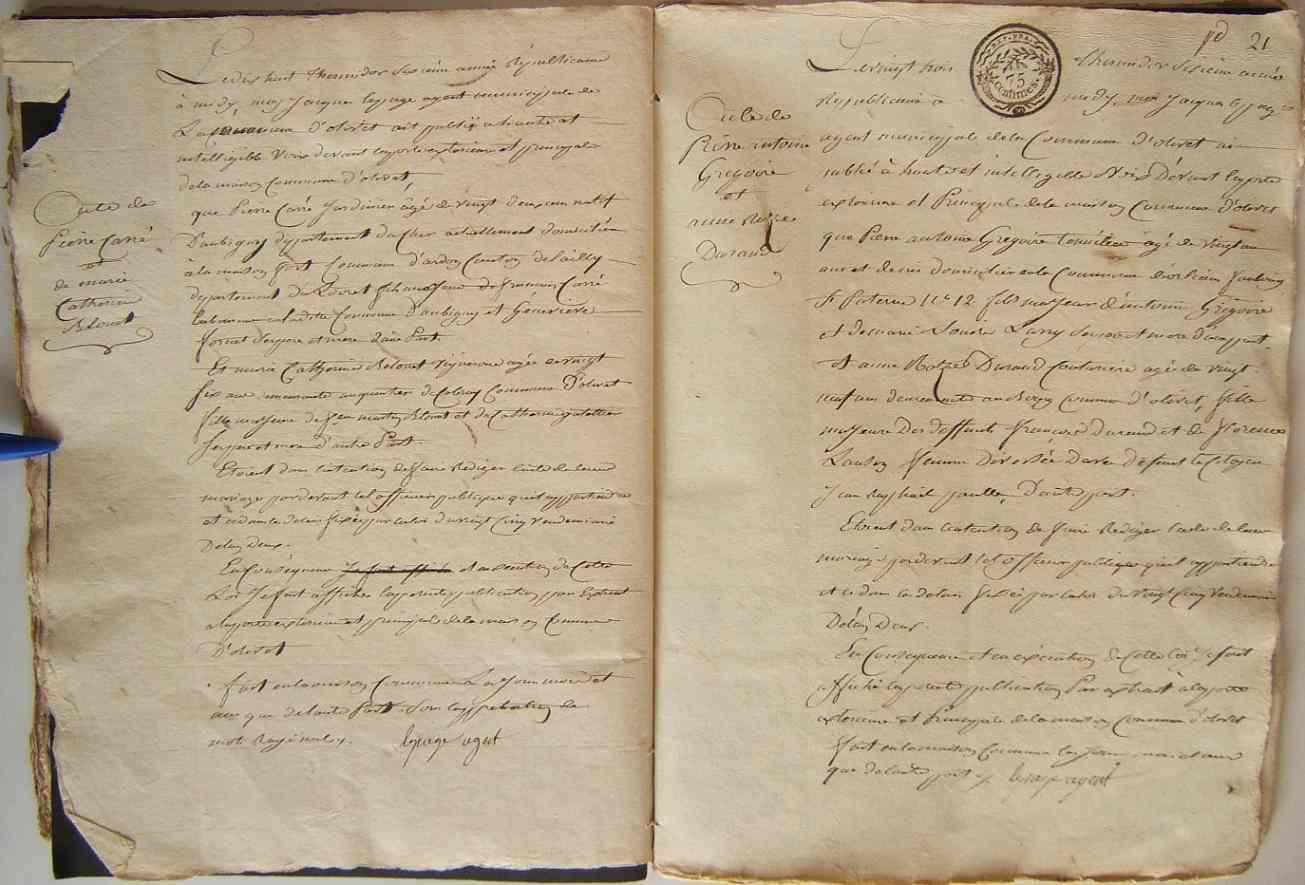 Le dix huit Thermidor Sixieme année Républicaine
à midy, moy Jacque lepage agent municipale de
La Commune d'olivet ait publié a haute et
intelligible Voix devant la porte exterieure et principale
de la maison Commune d'olivet,
Acte de
Pierre Carré
et
de marie
Catherine
Blouet
que Pierre Carré Jardinier âgé de vingt deux ans natif
D'aubigny département du Cher actuellement domicilié
à la maison fort Commune d'ardon Canton de
département du Loiret fils majeur de francois Carré
en ladite Commune d'aubigny et Génevieve
ses pere et mere d'une Part.
Et marie Catherine Blouet Vigneronne agée de vingt
six ans demeurante au quartier de Commune D'olivet
fille majeure de feu martin Blouet et de Catherine
ses pere et mere d'autre Part.
Etoient dans l'intention de faire Rediger l'acte de leur
mariage pardevant tel officier publique qu'il appartiendra
et ce dans le delais fixée par la loi du vingt Cinq Vendemiaire
Delan Deux.
En Conséquence et en execution de Cette
Loi J'ai fait afficher la presente publication par Extrait
a la porte exterieure et principale de la maison Commune
D'olivet
fait en la maison Commune Les Jour mois et
an que de l'autre Part. Sous l'approbation de
mots Rayé nuls.
lepage agent
21
RÉP. FRA.
75
centimes.
Le vingt trois Thermidor Sixieme année
Republicaine à midy, moi Jacque lepage
Acte de
Pierre antoine
Gregoire
et
anne
Durand
agent municipale de la Commune D'olivet ai
publié à haute et intelligible Voix Devant la porte
exterieure et Principale de la maison Commune D'olivet
que Pierre antoine Gregoire Tonnelier agé de vingt
ans et demi Domicilié en la Commune d'orleans faubourg
St Paterne No 12 fils majeur d'antoine Gregoire
et de marie Louise Larry ses pere et mere d'une part.
Et anne Durand Couturiere agé de vingt
neuf ans demeurante Commune d'olivet, fille
majeure des deffunts francois Durand et de florence
femme Divorcée Davec défunt le Citoyen
Jean Raphael D'autre part.
Etoient dans l'intention de faire Rediger l'acte de leur
mariage pardevant tel officier publique qu'il appartiendra
et ce dans le delais fixée par la loi du vingt Cinq Vendemiaire
Délan Deux.
En Conséquence et en exécution de Cette loi J'ai fait
affiché la presente publication Par extrait a la porte
exterieure et Principale de la maison Commune d'olivet
fait en la maison Commune les jour mois et an
que de l'autre part
lepage agent